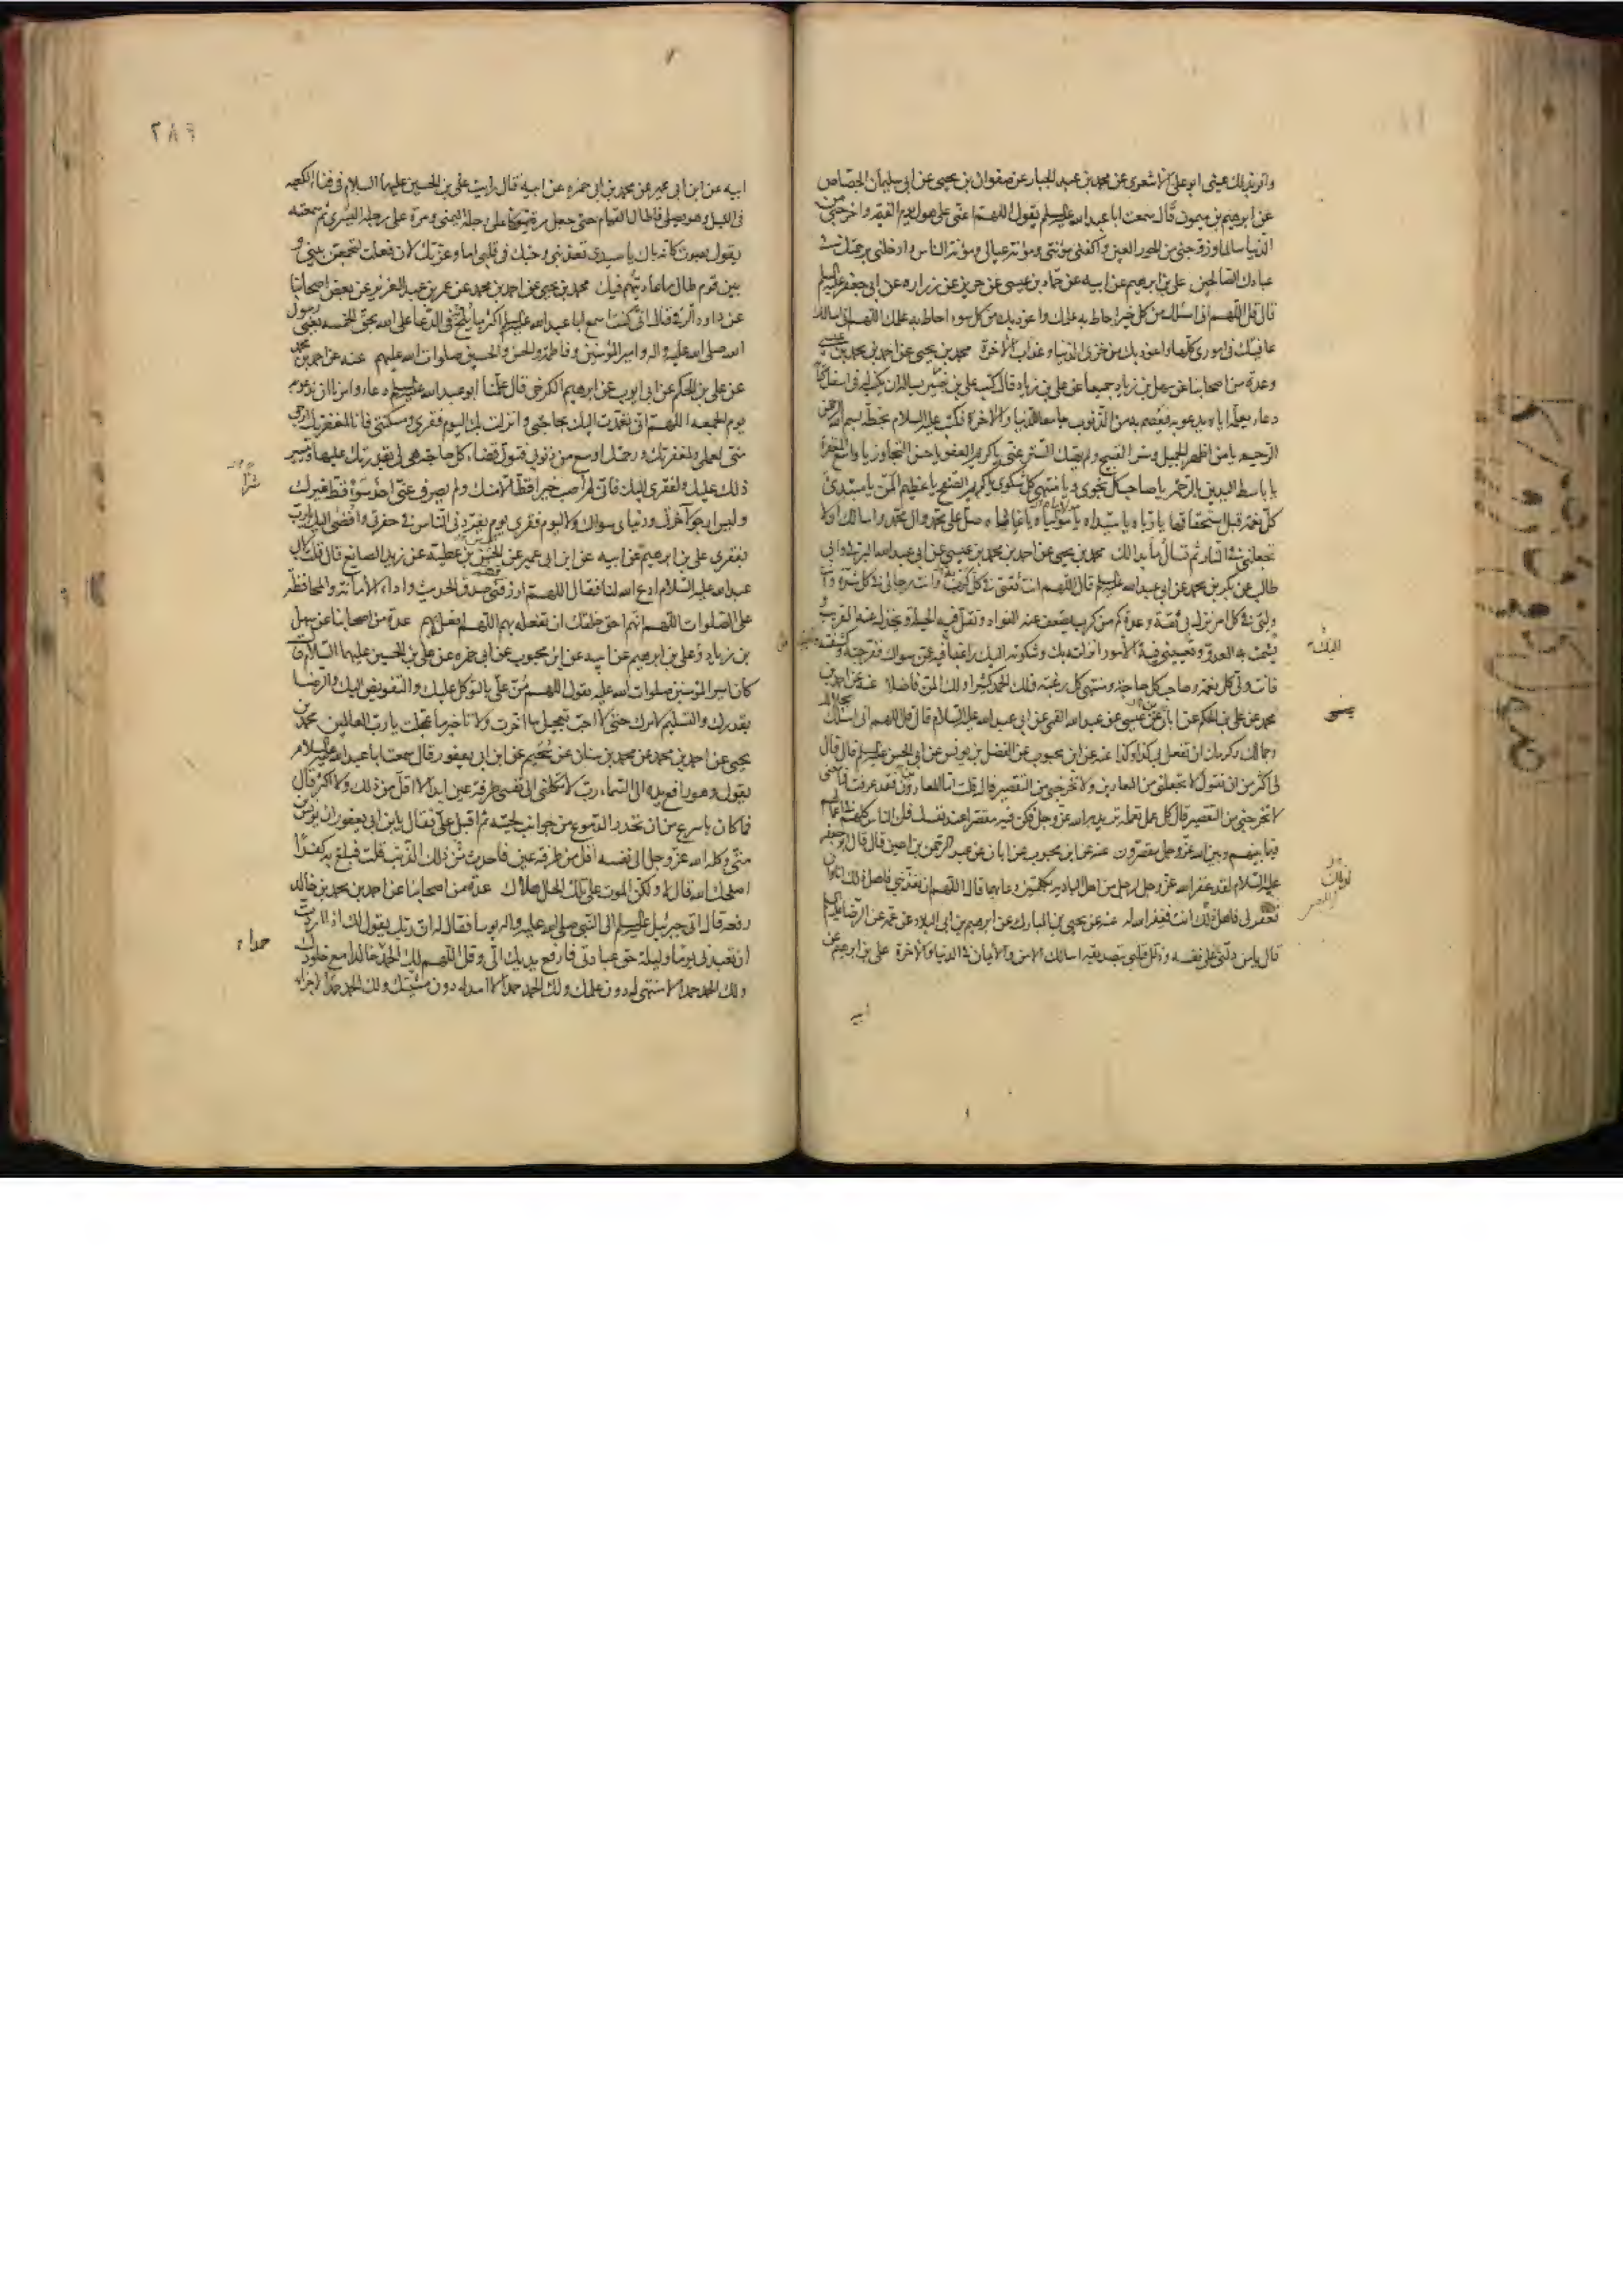 واقر بذلك عيني ابو علي الاشعري عن محمد بن عبد الجبار عن صفوان بن يحيى عن ابي سليمان الجصاص
عن ابرهيم بن ميمون قال سمعت ابا عبد الله عليه السلم يقول اللهم اعني على هول يوم القيمة واخرجني من
الدنيا سالما وزوجني من الحور العين واكفني مؤنتي ومؤنة عيالي ومؤنة الناس وادخلني برحمتك في
عبادك الصالحين علي بن ابرهيم عن ابيه عن حماد بن عيسى عن حريز عن زراره عن ابي جعفر عليه السلم
قال قل اللهم اني اسئلك من كل خير احاط به علمك واعوذ بك من كل سوء احاط به علمك اللهم اني اسالك
عافيتك في اموري كلها واعوذ بك من خزي الدنيا وعذاب الاخرة محمد بن يحيى عن احمد بن محمد بن عيسى
وعدة من اصحابنا عن سهل بن زياد جميعا عن علي بن زياد قال كتب علي بن بصير يساله ان يكتب له في اسفل كتابه
دعاء يعلمه اياه يدعو به فيعصم به من الذنوب جامعا للدنيا والاخرة فكتب عليه السلام بخطه بسم الله الرحمن
الرحيم يا من اظهر الجميل وستر القبيح ولم يهتك الستر عني يا كريم العفو يا حسن التجاوز يا واسع المغفرة
يا باسط اليدين بالرحمة يا صاحب كل نجوى ويا منتهى كل شكوى يا كريم الصفح يا عظيم المن يا مبتدئ
كل نعمة قبل استحقاقها يا رباه يا سيداه يا مولياه يا غياثاه صل على محمد وال محمد واسالك ان لا
تجعلني في النار ثم تسال ما بدا لك محمد بن يحيى عن احمد بن محمد بن عيسى عن ابي عبد الله البرقي وابي
طالب عن بكر بن محمد عن ابي عبد الله عليه السلم قال اللهم انت ثقتي في كل كربة وانت رجائي في كل شدة وانت
ولي في كل امر نزل بي ثقة وعدة كم من كرب يضعف عنه الفؤاد وتقل فيه الحيلة ويخذل عنه القريب و
يشمت به العدو وتعييني فيه الامور انزلته بك وشكوته اليك راغبا فيه عمن سواك ففرجته وكشفته
فانت ولي كل نعمة وصاحب كل حاجة ومنتهى كل رغبة فلك الحمد كثيرا ولك المن فاضلا عنه عن احمد بن
محمد عن علي بن الحكم عن ابان عن عيسى بن عبد الله القمي عن ابي عبد الله عليه السلام قال قل اللهم اني اسئلك بجلالك
وجمالك وكرمك ان تفعل بي كذا وكذا عنه عن ابن محبوب عن الفضل بن يونس عن ابي الحسن عليه السلم قال قال
لي اكثر من ان تقول لا تجعلني من المعارين ولا تخرجني من التقصير قال قلت اما المعارون فقد عرفت فما معنى
لا تخرجني من التقصير قال كل عمل تعمله تريد به الله عز وجل فكن فيه مقصرا عند نفسك فان الناس كلهم في اعمالهم
فيما بينهم وبين الله عز وجل مقصرون عنه عن ابن محبوب عن ابان عن عبد الرحمن بن اعين قال قال ابو جعفر
عليه السلام لقد غفر الله عز وجل لرجل من اهل الباديه بكلمتين دعا بهما قال اللهم ان تعذبني فاهل ذلك انا وان
تغفر لي فاهل ذلك انت فغفر الله له عنه عن يحيى بن المبارك عن ابرهيم بن ابي البلاد عن عمه عن الرضا عليه السلم
قال يا من دلني على نفسه وذلل قلبي بتصديقه اسالك الامن والايمان في الدنيا والاخرة علي بن ابرهيم عن
ابيه
٢٨٦
ابيه عن ابن ابي عمير عن محمد بن ابي حمزه عن ابيه قال رايت علي بن الحسين عليهما السلام في فناء الكعبه
في الليل وهو يصلي فاطال القيام حتى جعل مرة يتوكا على رجله اليمنى ومرة على رجله اليسرى ثم سمعته
يقول بصوت كانه باك يا سيدي تعذبني وحبك في قلبي اما وعزتك لان فعلت لتجمعن بيني و
بين قوم طال ما عاديتهم فيك محمد بن يحيى عن احمد بن محمد عن عمر بن عبد العزيز عن بعض اصحابنا
عن داود الرقي قال اني كنت اسمع ابا عبد الله عليه السلم اكثر ما يلح في الدعا على الله بحق الخمسه يعني رسول
الله صلى الله عليه واله وامير المؤمنين وفاطمة والحسن والحسين صلوات الله عليهم عنه عن احمد بن محمد
عن علي بن الحكم عن ابي ايوب عن ابرهيم الكرخي قال علمنا ابو عبد الله عليه السلم دعاء وامرنا ان ندعو به
يوم الجمعه اللهم اني تعمدت اليك بحاجتي وانزلت بك اليوم فقري ومسكنتي فانا لمغفرتك ارجى
مني لعملي ولمغفرتك ورحمتك اوسع من ذنوبي فتول قضاء كل حاجة هي لي بقدرتك عليها وتيسير
ذلك عليك ولفقري اليك فاني لم اصب خيرا قط الا منك ولم يصرف عني احد سوءا قط غيرك
وليس ارجو لاخرتي ودنياي سواك ولا ليوم فقري يوم يفردني الناس في حفرتي وافضي اليك يا رب
بفقري علي بن ابرهيم عن ابيه عن ابن ابي عمير عن الحسن بن عطية عن زيد الصايغ قال قلت لابي
عبد الله عليه السلام ادع الله لنا فقال اللهم ارزقهم صدق الحديث واداء الامانة والمحافظة
على الصلوات اللهم انهم احق خلقك ان تفعله بهم اللهم افعل بهم عدة من اصحابنا عن سهل
بن زياد وعلي بن ابرهيم عن ابيه عن ابن محبوب عن ابي حمزه عن علي بن الحسين عليهما السلام قال
كان امير المؤمنين صلوات الله عليه يقول اللهم من علي بالتوكل عليك والتفويض اليك والرضا
بقدرك والتسليم لامرك حتى لا احب تعجيل ما اخرت ولا تاخير ما عجلت يا رب العالمين محمد بن
يحيى عن احمد بن محمد عن محمد بن سنان عن سحيم عن ابن ابي يعفور قال سمعت ابا عبد الله عليه السلام
يقول وهو رافع يده الى السماء رب لا تكلني الى نفسي طرفة عين ابدا لا اقل من ذلك ولا اكثر قال
فما كان باسرع من ان تحدر الدموع من جوانب لحيته ثم اقبل علي فقال يا بن ابي يعفور ان يونس بن
متى وكله الله عز وجل الى نفسه اقل من طرفة عين فاحدث ذلك الذنب قلت فبلغ به كفرا
اصلحك الله قال لا ولكن الموت على تلك الحال هلاك عدة من اصحابنا عن احمد بن محمد بن خالد
رفعه قال اتى جبرئيل عليه السلم الى النبي صلى الله عليه واله وسلم فقال له ان ربك يقول لك اذا اردت
ان تعبدني يوما وليلة حق عبادتي فارفع يديك الي وقل اللهم لك الحمد خالدا مع خلودك
ولك الحمد حمدا لا منتهى له دون علمك ولك الحمد حمدا لا امد له دون مشيتك ولك الحمد حمدا لا جزاء